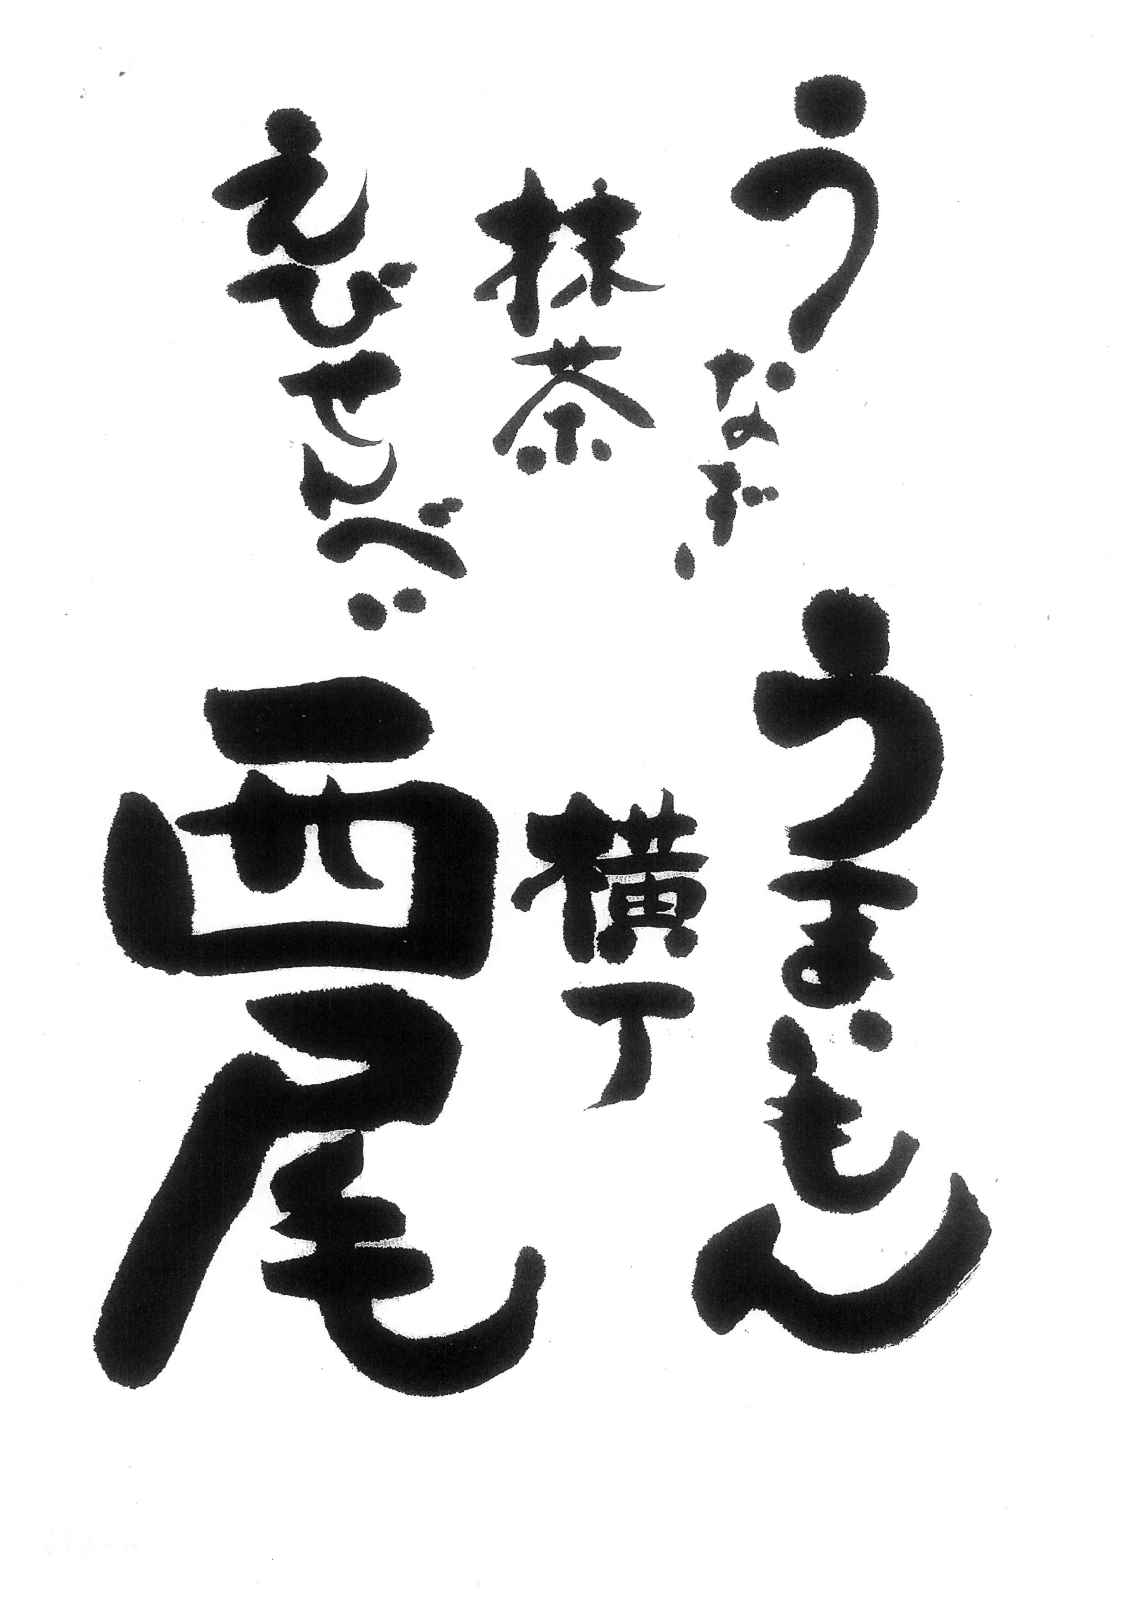 うなぎ
抹茶
えびせんべい
うまいもん
横丁
西尾